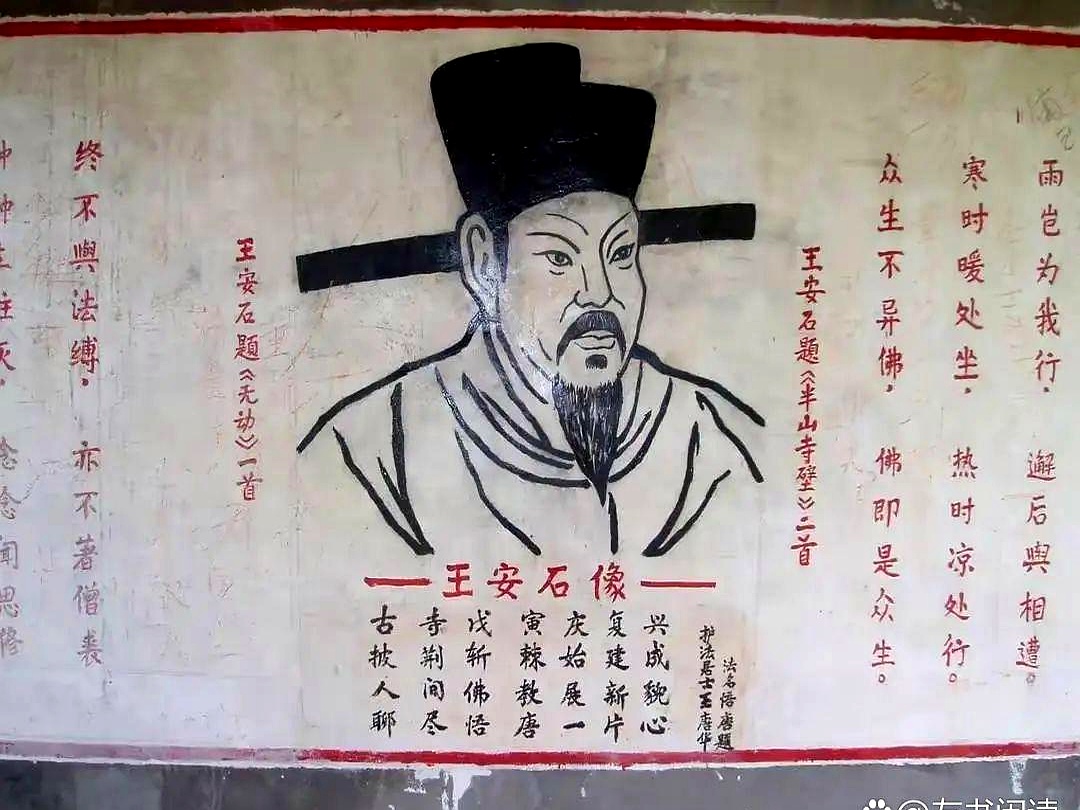 雨岂为我行，邂后舆相遭。
寒时暖处坐，热时凉处行。
众生不异佛，佛即是众生。
王安石題《半山寺壁》二首
王安石像
古寺戊寅庆复兴
披荆斩棘始建成
人间佛教展新貌
聊尽悟唐一片心
护法居士王唐华
法名悟唐題
王安石題《无动》一首
终不舆法缚，亦不著僧裘
念念闻思修